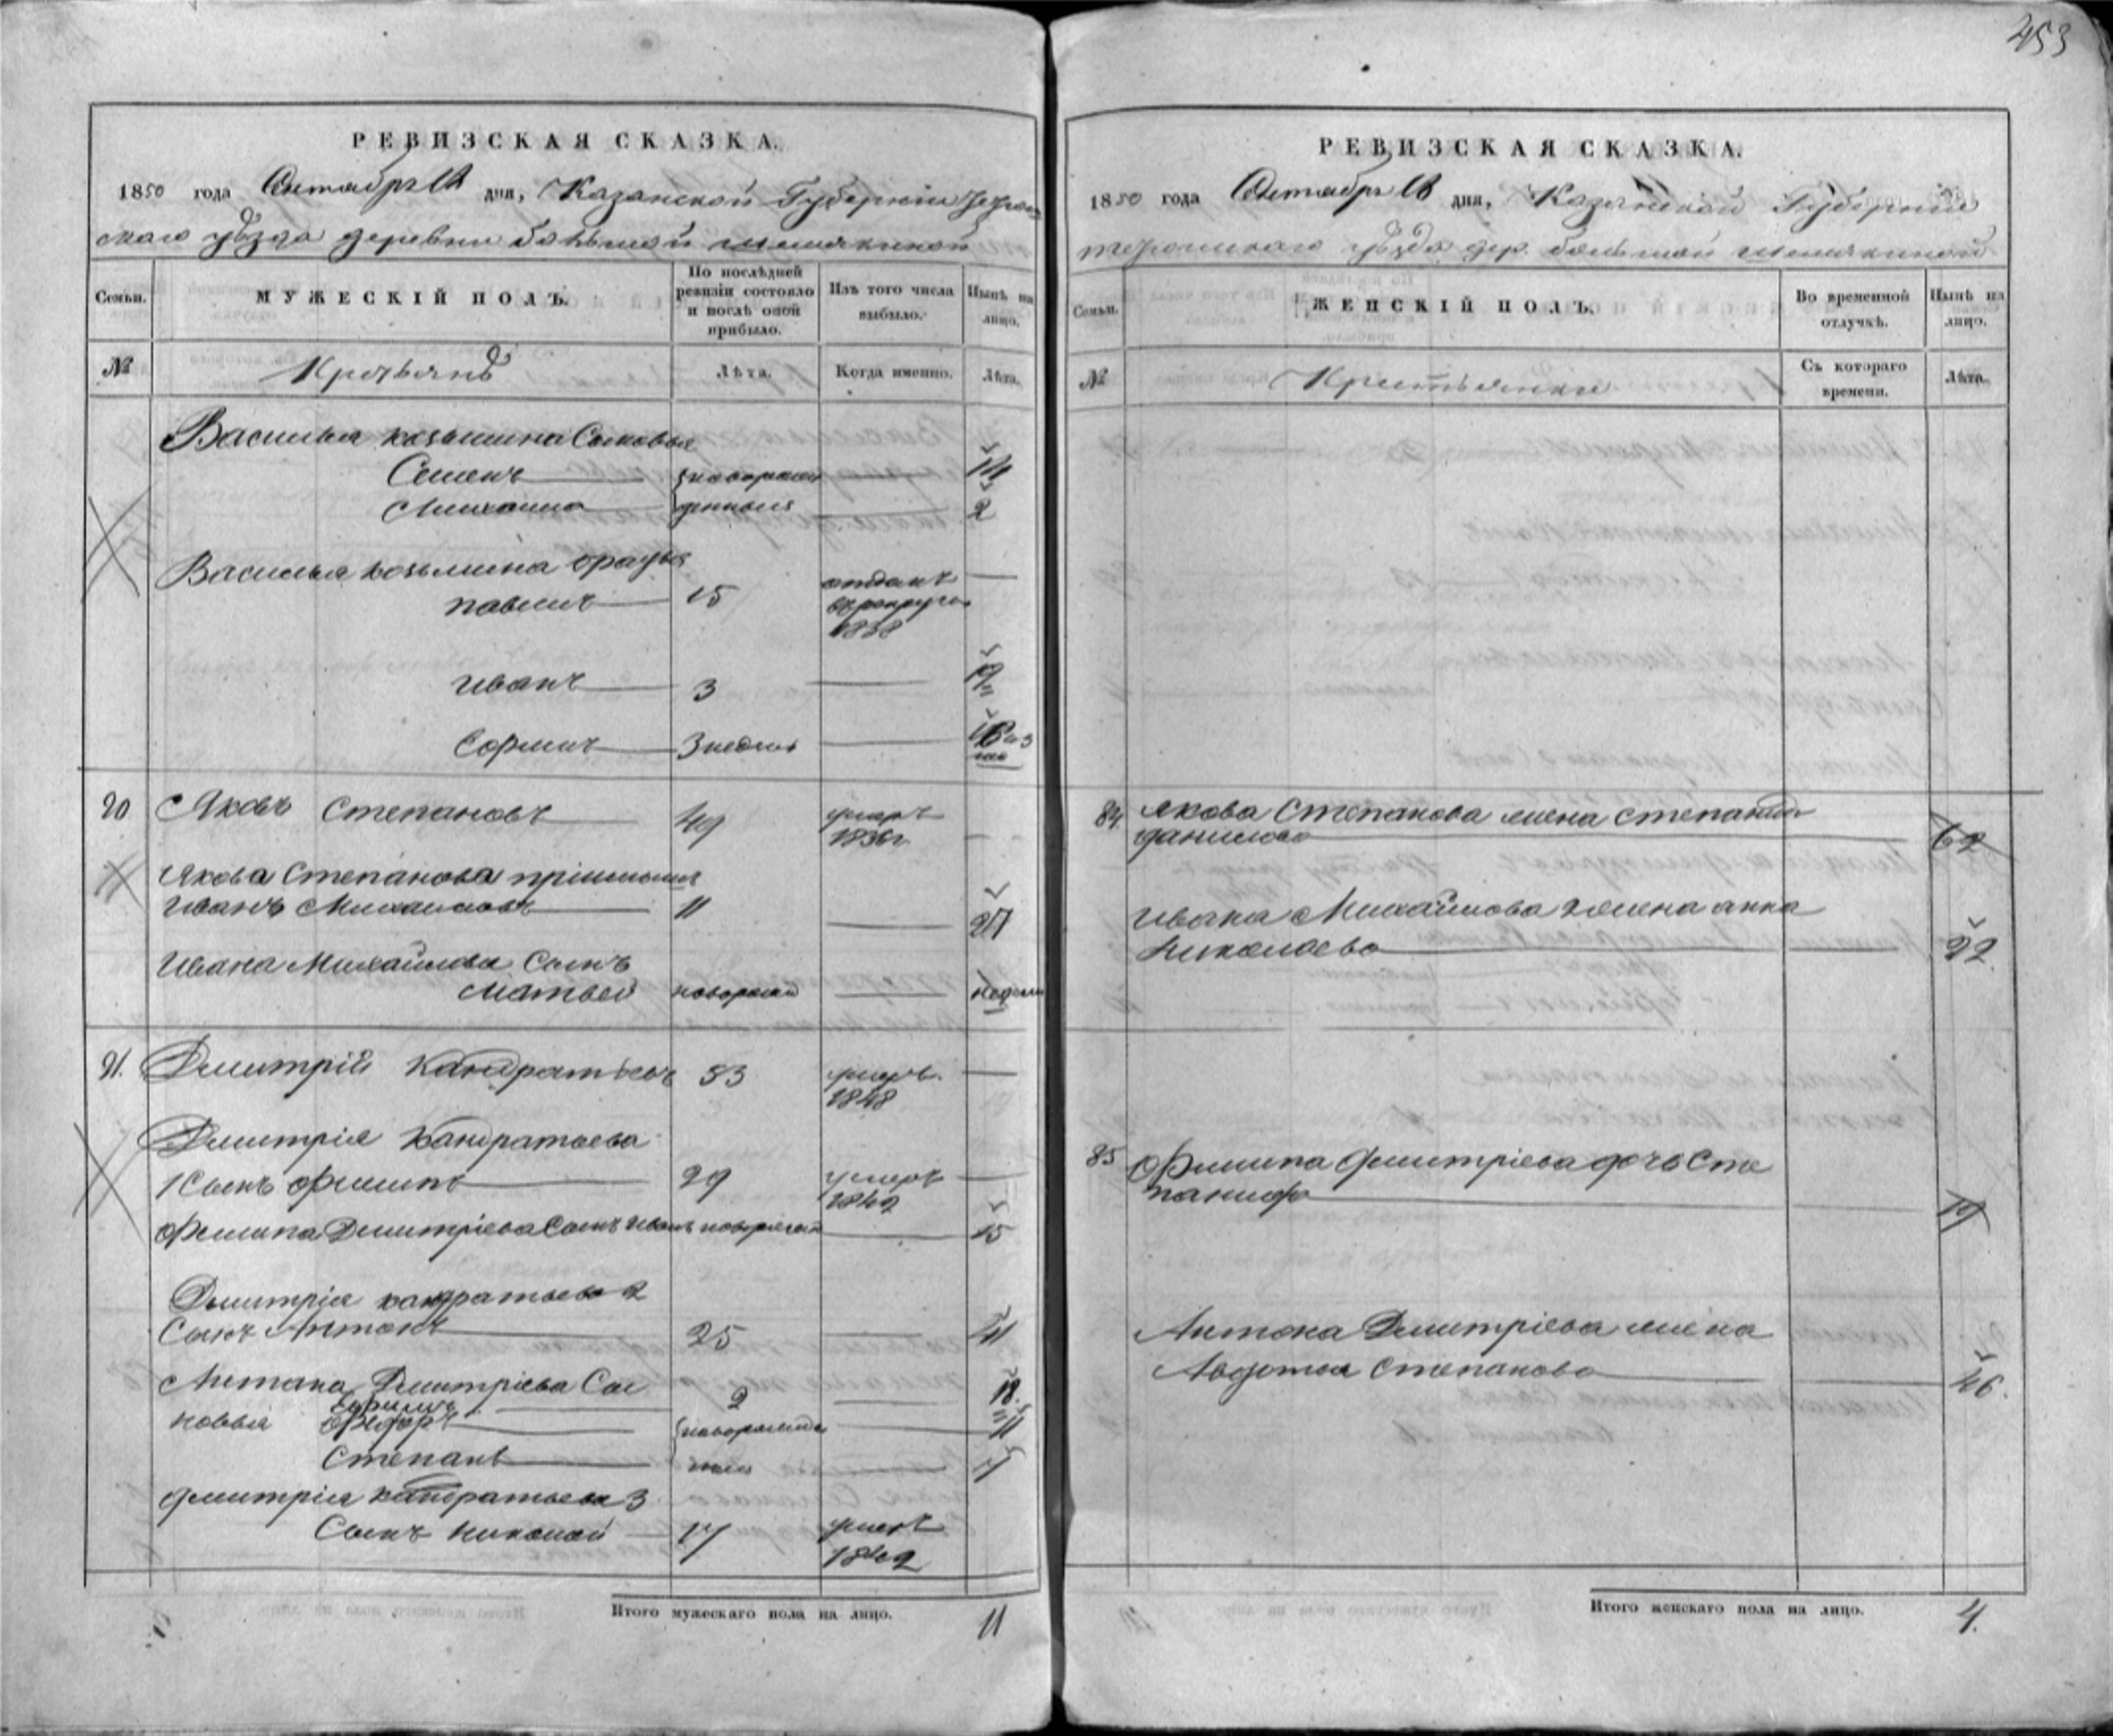 453
РЕВИЗСКАЯ СКАЗКА.
1850 года Октября 18 дня, Казанской Губернiи
скаго уѣзда деревни большой шемякиной
Семьи.
МУЖЕСКIЙ ПОЛЪ.
По послѣдней ревизiи состояло и послѣ оной прибыло.
Изъ того числа выбыло.
Нынѣ на лицо.
№
Крестьянъ
Лѣта.
Когда именно.
Лѣта.
Василья козьмина Сыновья
Семенъ новорож 14
Михаило денныя 2
Василья козьмина братья
павелъ 15 отданъ
в рекруты
1838
иванъ 3 19
3 недель 16
20 Яковъ Степановъ 49 умеръ
1836г
Якова Степанова прiимышъ
иванъ Михаиловъ 11 27
Ивана Михаилова Сынъ
Матвей новорож недели
21. Дмитрiй Кандратьевъ 53 умеръ
1848
Дмитрiя Кандратьева
1 Сынъ филипъ 29 умеръ
1849
филипа Дмитрiева Сынъ иванъ новорожден 15
Дмитрiя кандратьева 2
Сынъ Антонъ 25 41
Антона Дмитрiева Сы
Ефимъ 2 18
новья Федоръ новорожде 11
Степанъ ныя 7
дмитрiя кандратьева 3
Сынъ николай 17 умеръ
1849
Итого мужескаго пола на лицо. 11
РЕВИЗСКАЯ СКАЗКА.
1850 года Октября 18 дня, Казанской Губернiи
уѣзда дер. большой шемякиной
Семьи.
ЖЕНСКIЙ ПОЛЪ.
Во временной отлучкѣ.
Нынѣ на лицо.
№
Крестьянки
Съ котораго времени.
Лѣта.
84. Якова Степанова жена степанида
данилова 62
ивана Михайлова жена анна
николаева 22.
85 Филипа дмитрiева дочь Сте
панида 19
Антона Дмитрiева жена
Авдотья Степанова 46.
Итого женскаго пола на лицо. 4.